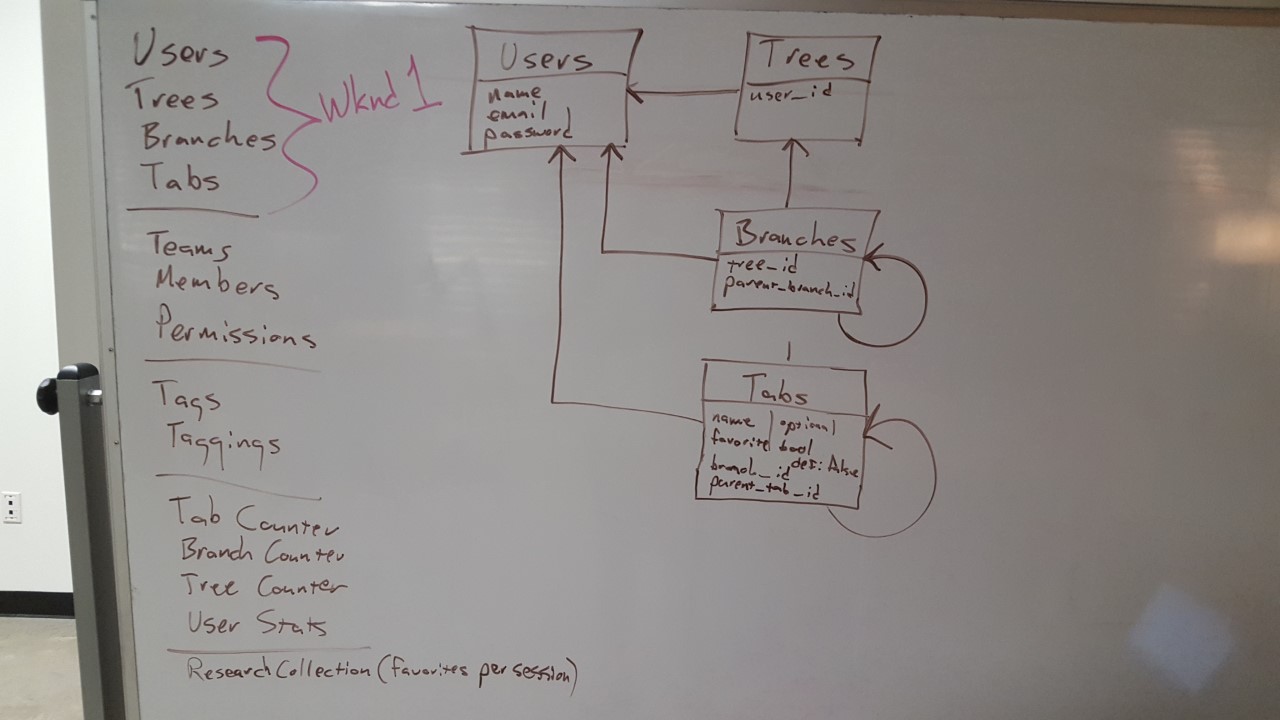 Users
Trees
Branches
Tabs
Wknd 1
Teams
Members
Permissions
Tags
Taggings
Tab Counter
Branch Counter
Tree Counter
User Stats
Research Collection (favorites per session)
Users
name
email
password
Trees
user_id
Branches
tree_id
parent_branch_id
Tabs
name | optional
favorite bool
def: false
branch_id
parent_tab_id